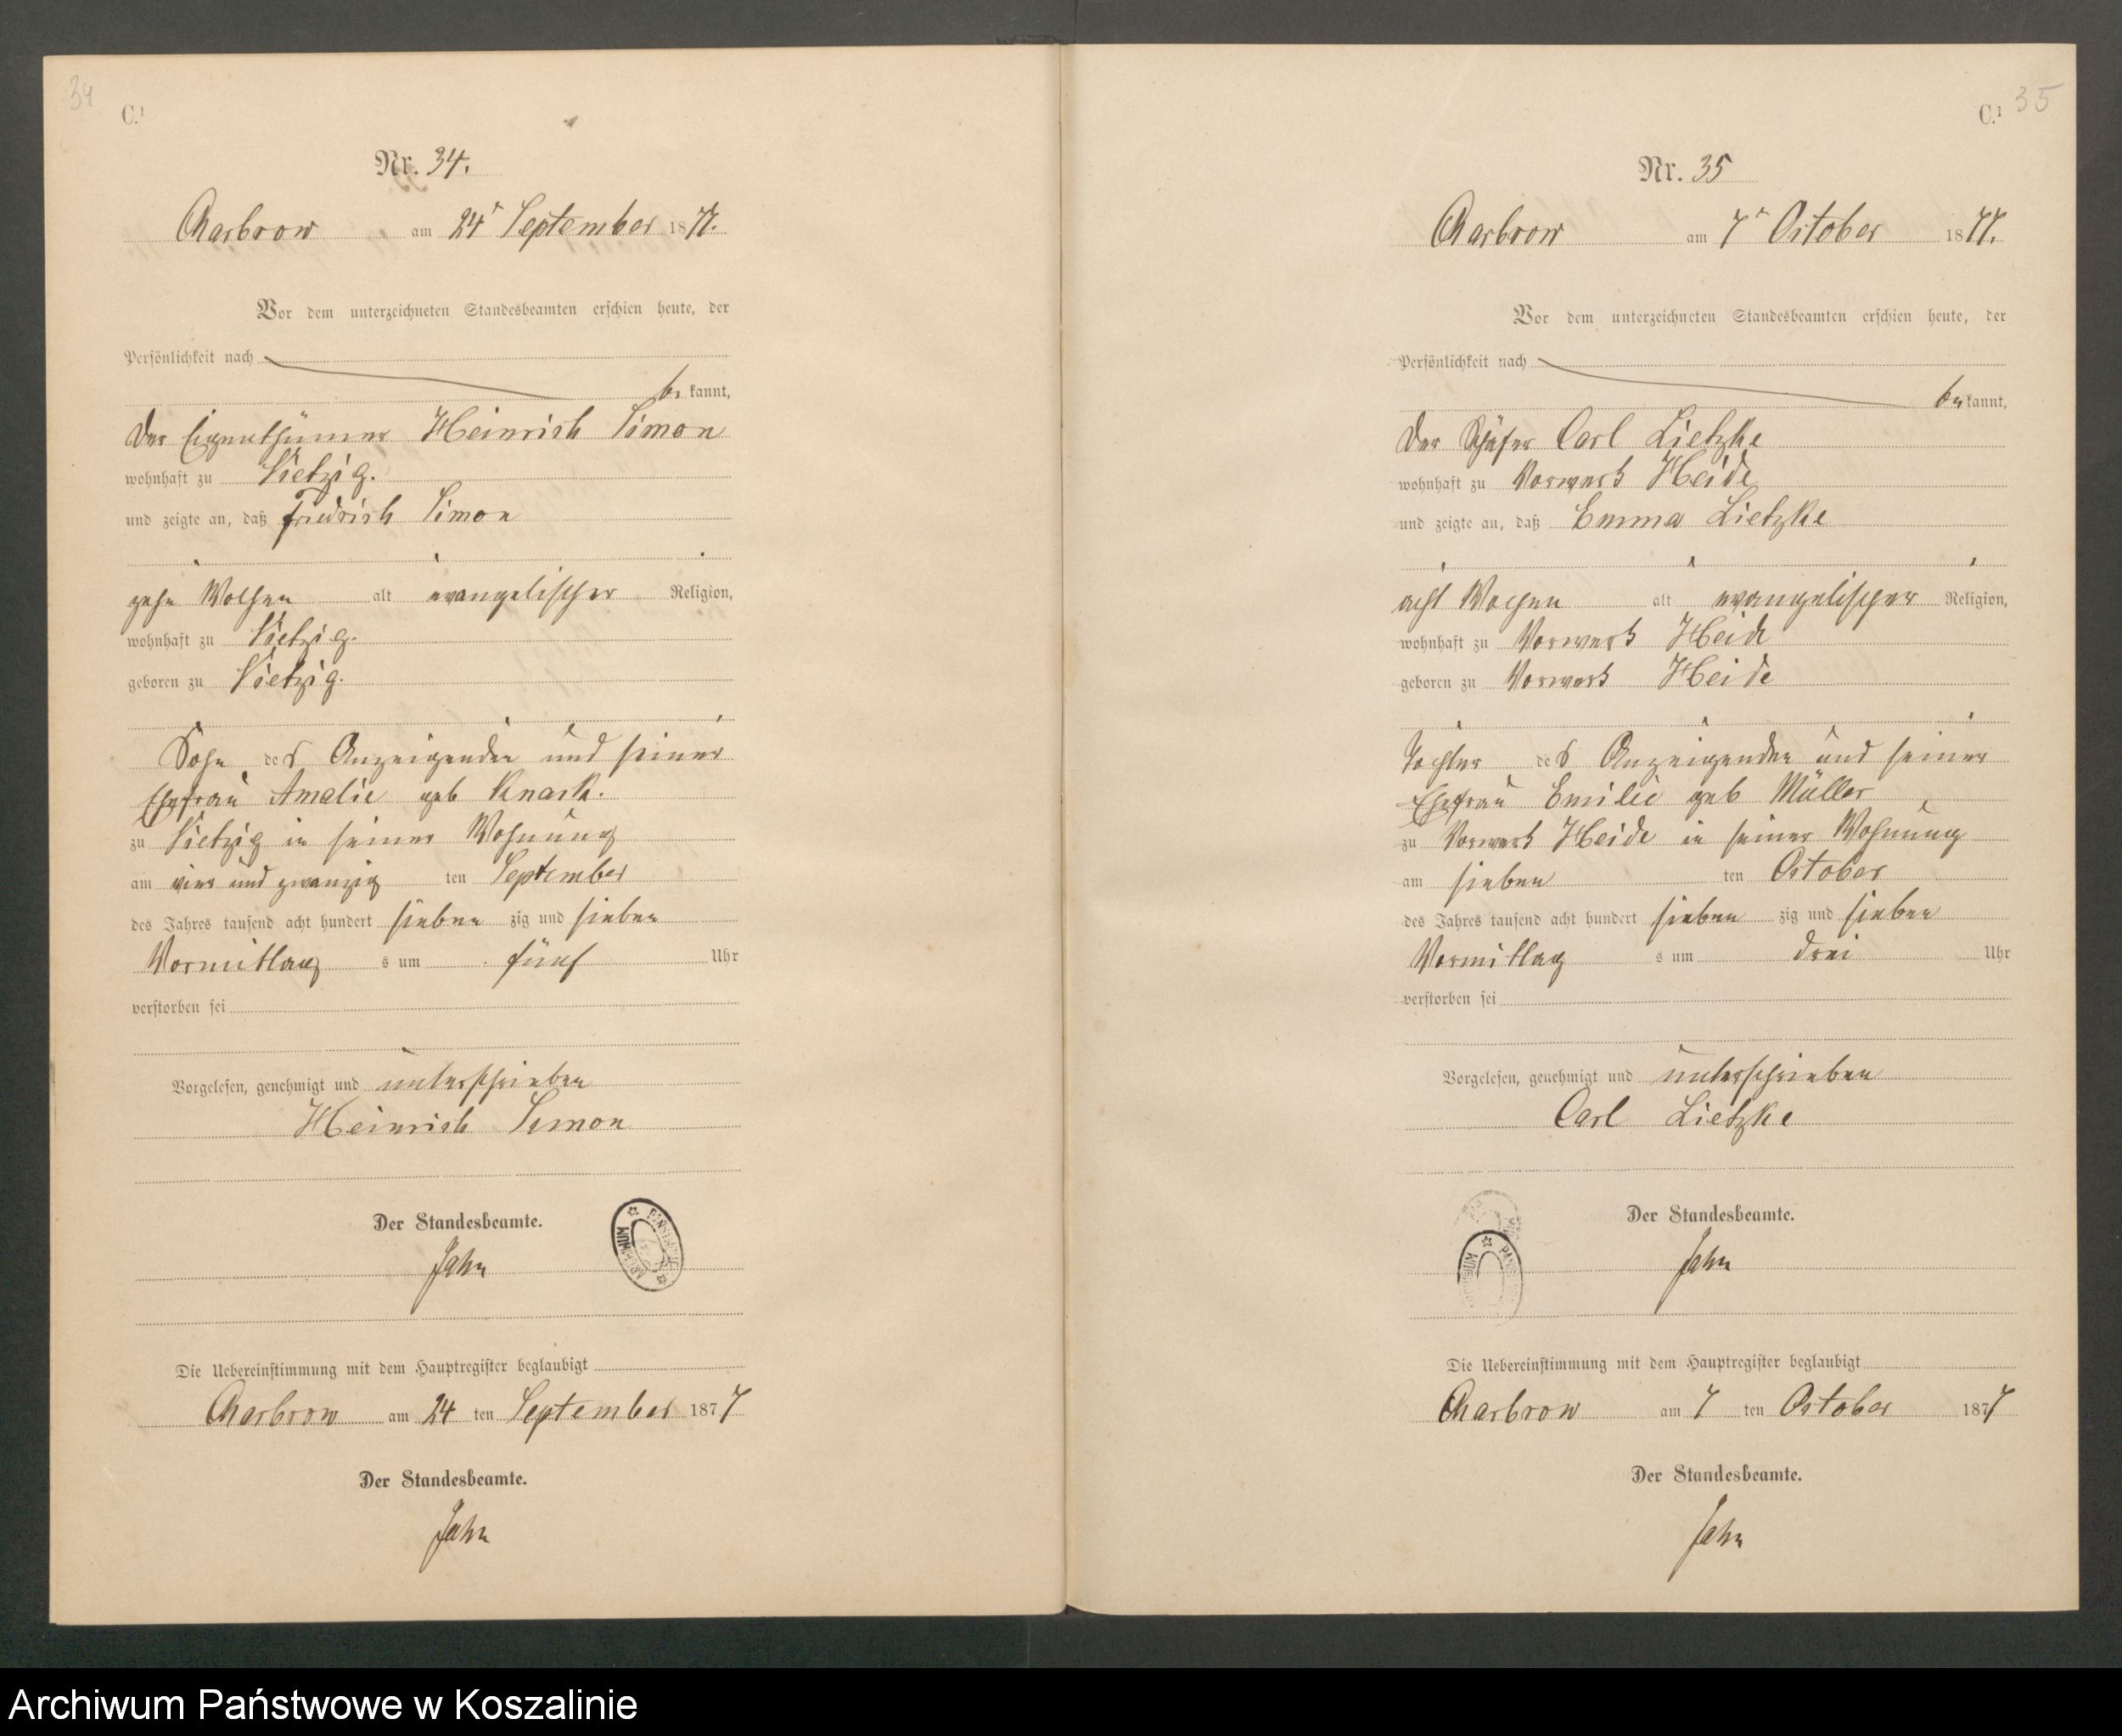 34
C.¹
Nr. 34.
Charbrow am 24ᵗ September 1877.
Vor dem unterzeichneten Standesbeamten erschien heute, der
Persönlichkeit nach
bekannt,
Der Eigenthümer Heinrich Simon
wohnhaft zu Vietzig.
und zeigte an, daß Friedrich Simon
zehn Wochen alt evangelischer Religion,
wohnhaft zu Vietzig.
geboren zu Vietzig.
Sohn des Anzeigenden und seiner
Ehefrau Amalie geb Knack.
zu Vietzig in seiner Wohnung
am vier und zwanzig ten September
des Jahres tausend acht hundert sieben zig und sieben
Vormittag s um fünf Uhr
verstorben sei
Vorgelesen, genehmigt und unterschrieben
Heinrich Simon
Der Standesbeamte.
Jahn
Die Uebereinstimmung mit dem Hauptregister beglaubigt
Charbrow am 24 ten September 1877
Der Standesbeamte.
Jahn
35
C.¹
Nr. 35
Charbrow am 7ᵗ October 1877.
Vor dem unterzeichneten Standesbeamten erschien heute, der
Persönlichkeit nach
bekannt,
Der Schäfer Carl Lietzke
wohnhaft zu Vorwerk Heide
und zeigte an, daß Emma Lietzke
acht Wochen alt evangelischer Religion,
wohnhaft zu Vorwerk Heide
geboren zu Vorwerk Heide
Tochter des Anzeigenden und seiner
Ehefrau Emilie geb Müller
zu Vorwerk Heide in seiner Wohnung
am sieben ten October
des Jahres tausend acht hundert sieben zig und sieben
Vormittag s um drei Uhr
verstorben sei
Vorgelesen, genehmigt und unterschrieben
Carl Lietzke
Der Standesbeamte.
Jahn
Die Uebereinstimmung mit dem Hauptregister beglaubigt
Charbrow am 7 ten October 1877
Der Standesbeamte.
Jahn
Archiwum Państwowe w Koszalinie